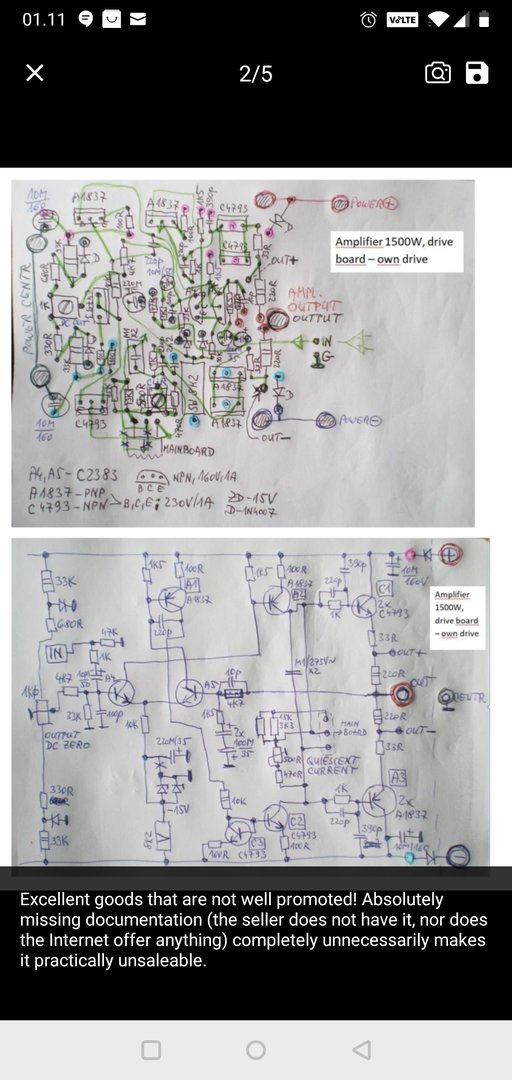 01.11
VoLTE
2/5
10M
160
A1837
A1837
C4793
POWER+
C4793
Amplifier 1500W, drive
board – own drive
OUT+
POWER CENTR
680R
220p
220R
AMPL.
OUTPUT
OUTPUT
IN
G
330R
8K2
A1837
C4793
A1837
POWER-
10M
160
OUT-
MAINBOARD
A4, A5 - C2383
NPN, 160V, 1A
B C E
A1837 - PNP
C4793 - NPN
B, C, E; 230V/1A
ZD-15V
D-1N4007
1K5
100R
1K5
100R
390p
10M
160V
33K
A1
A1837
A1837
220p
C1
Amplifier
1500W,
drive board
– own drive
680R
220p
1K
2x
C4793
IN
47K
33R
OUT+
1K
M1/275V~
X2
220R
4K7
A5
10p
4K7
OUT
CENTR
33K
100p
10K
1K5
220R
OUTPUT
DC ZERO
220M/35
2x
100M
35
15K
3K3
MAIN
BOARD
OUT-
33R
500R
QUIESCENT
CURRENT
470R
330R
-15V
10K
1K
A3
2x
A1837
C2
C4793
220p
33K
8K2
100R
C3
C4793
100R
390p
10M/160
Excellent goods that are not well promoted! Absolutely
missing documentation (the seller does not have it, nor does
the Internet offer anything) completely unnecessarily makes
it practically unsaleable.